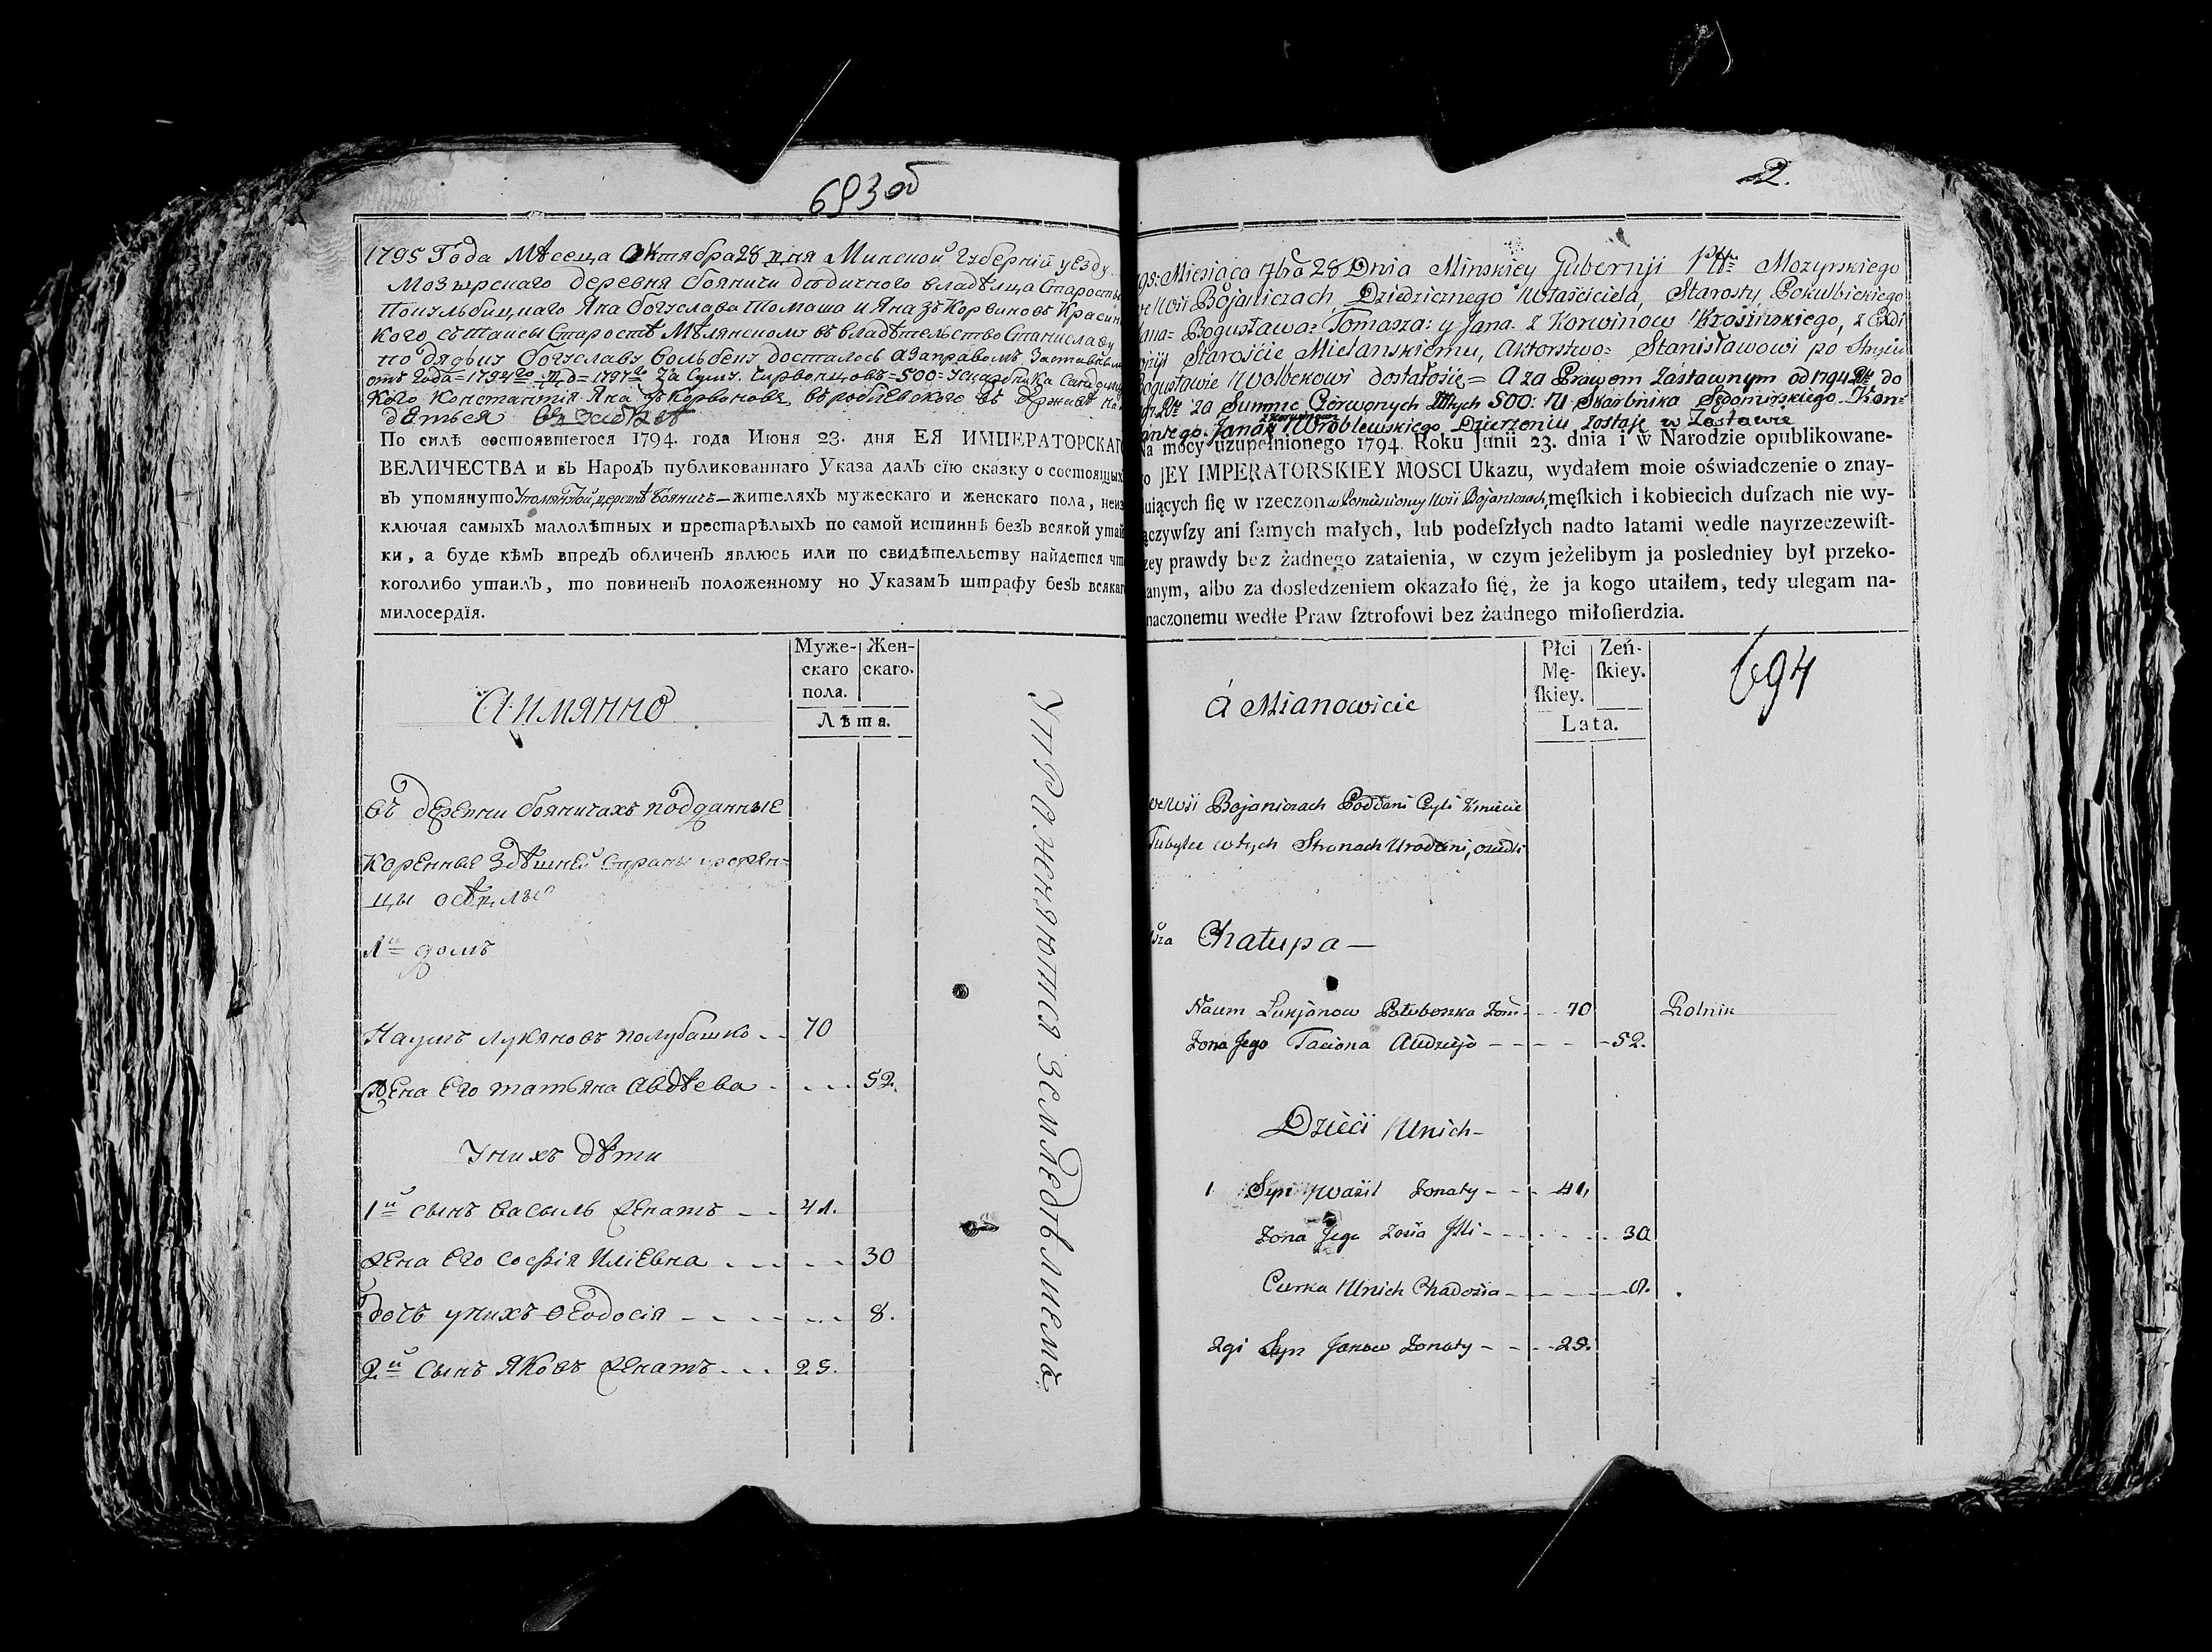 693 об
1795 Года Мѣсеца Октября 28 дня Минской Губерніи уезду
Мозырскаго деревня Бояничи дѣдичного владѣлца Старосты
Яна Богуслава Томаша и Яна зъ Корвиновъ Красин
кого Старостѣ Мѣлянскому Станиславу
по дядьку Богуславу досталось а заправомъ
отъ года = 1794го до = 1797го за Суму Чирвонцовъ = 500 =
кого Константія Яна зъ Корвоновъ
По силѣ состоявшегося 1794. года Июня 23. дня ЕЯ ИМПЕРАТОРСКАГ
ВЕЛИЧЕСТВА и въ Народъ публикованнаго Указа далъ сїю сказку о состоящыхъ
въ упомянуто — жителяхъ мужескаго и женскаго пола, неиз
ключая самыхъ малолѣтныхъ и престарѣлыхъ по самой истиннѣ безъ всякой утай
ки, а буде кѣмъ впредъ обличенъ явлюсь или по свидѣтельству найдется чт
коголибо утаилъ, то повиненъ положенному но Указамъ штрафу безъ всякаг
милосердїя.
Муже- Жен-
скаго скаго.
пола.
Лѣта.
А имянно
въ деревни бояничахъ подданные
коренные здѣшней страны
1й домъ
Наумъ Лукяновъ Полубашко 70
Жена Его татьяна Авдѣева 52.
У нихъ дѣти
1й сынъ василь Женатъ 41.
Жена Его софія Иліевна 30
дочъ у нихъ Ѳеодосія 8.
2й сынъ Яковъ Женатъ 29.
Упражняются земледѣлиемъ
2.
Miesiąca 7bra 28 Dnia Minskiey Gubernji Pttu Mozyrskiego
we Wsii Bojaniczach Dziedzicznego Właściciela, Starosty Pokulbickiego
Jana= Bogusława= Tomasza: y Jana. z Korwinow Krasińskiego, z
Staroście Mielanskiemu, Aktorstwo= Stanisławowi po Stryiu
Bogusławie Wolbekowi dostałosię = A za Prawem Zastawnym od 1794 Rku do
za Summę Czerwonych Złłtych 500: W Skarbnika Sędomirskiego Kon=
Jana z Korwinow Wroblewskiego Dzierzeniu zostaje w Zastawie
Na mocy uzupełnionego 1794. Roku Junii 23. dnia i w Narodzie opublikowane-
o JEY IMPERATORSKIEY MOSCI Ukazu, wydałem moie oświadczenie o znay-
uiących ſię w rzeczon w Pomienioney Wsii Bojaniczach, męſkich i kobiecich duſzach nie wy-
ączywſzy ani ſamych małych, lub podeſzłych nadto latami wedle nayrzeczewiſt-
zey prawdy bez żadnego zataienia, w czym jeżelibym ja posledniey był przeko-
anym, albo za dosledzeniem okazało ſię, że ja kogo utaiłem, tedy ulegam na-
naczonemu wedłe Praw ſztrofowi bez żadnego miłoſierdzia.
Płci Zeń-
Mę- ſkiey.
ſkiey.
Lata.
694
á Mianowicie
we Wsii Bojaniczach Poddani Czyli Kmiecie
Tubylce w tych Stronach Urodzeni, osiedli
Chałupa —
Naum Lukjanow Połuboszka Żon. 70 Rolnik
Żona Jego Taciona Audzieja 52.
Dzieci U nich
1 Syn Wasil Żonaty 41,
Żona Jego Zosia Illi 30
Curka U nich Chadosia 8.
2gi Syn Jakow Żonaty 29.